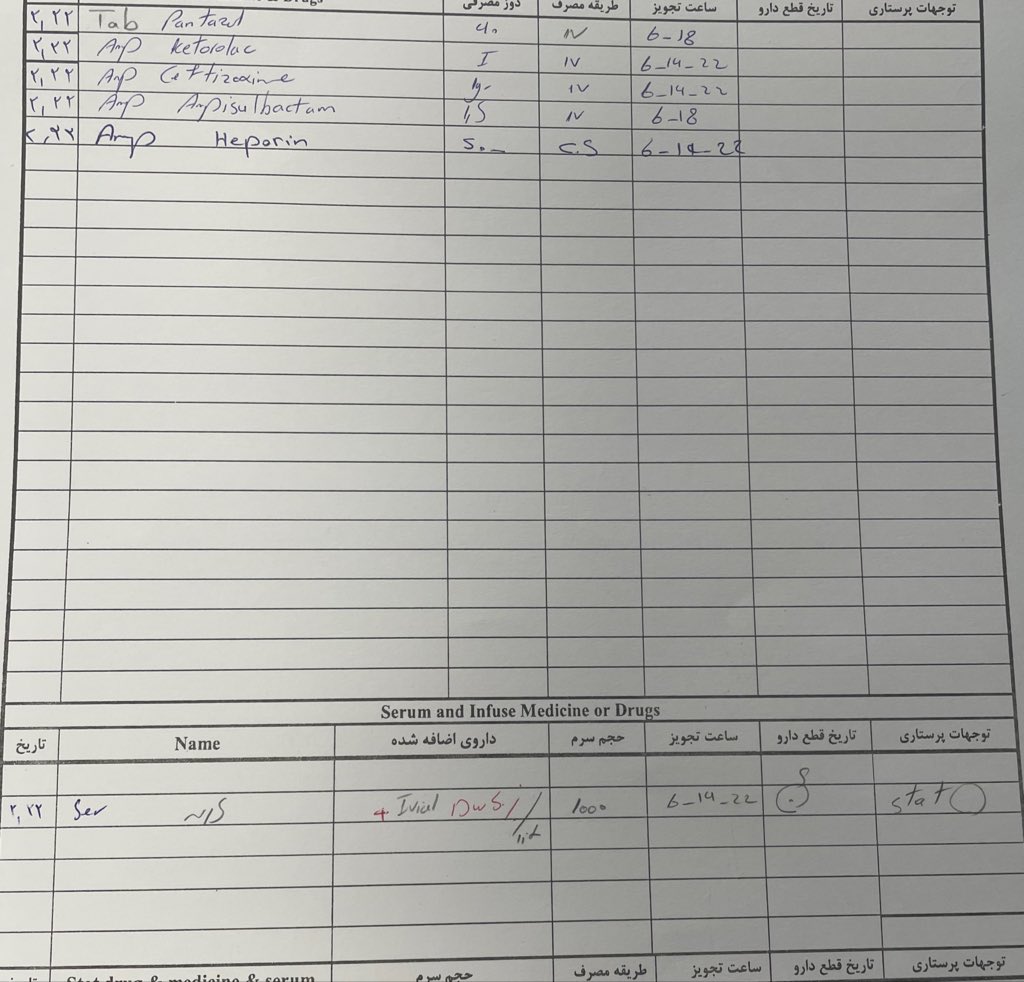 دوز مصرفی طریقه مصرف ساعت تجویز تاریخ قطع دارو توجهات پرستاری
۲,۲۲ Tab Pantazol ۴۰ IV 6-18
۲,۲۲ Amp ketorolac I IV 6-14-22
۲,۲۲ Amp Ceftizoxime 1g IV 6-14-22
۲,۲۲ Amp Ampisulbactam 1,5 IV 6-18
۲,۲۲ Amp Heporin 5000 S.C 6-14-22
Serum and Infuse Medicine or Drugs
تاریخ Name داروی اضافه شده حجم سرم ساعت تجویز تاریخ قطع دارو توجهات پرستاری
۲,۲۲ Ser N/S + I vial DW5% 1000 6-14-22 stat
Stat drug & medicine & serum حجم سرم طریقه مصرف ساعت تجویز تاریخ قطع دارو توجهات پرستاری